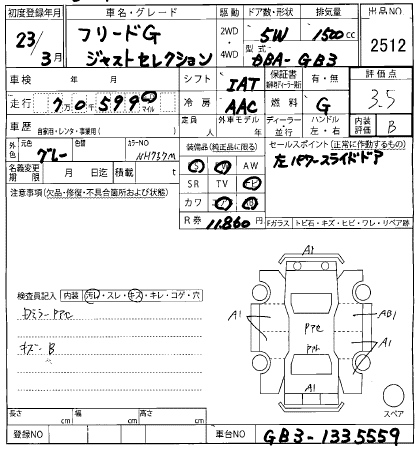 初度登録年月 車名・グレード 駆動 ドア数・形状 排気量 出品NO
23/3月 フリードG ジャストセレクション 2WD・4WD 5W 1500cc 2512
型式 DBA-GB3
車検 年 月 シフト IAT 保証書 有・無 評価点 3.5
走行 7万0千599 マイル 冷房 AAC 燃料 G
車歴 自家用・レンタ・事業用( ) 定員 人 外車モデル 年 ディーラー・並行 ハンドル 左・右 内装評価 B
外色 元色 グレー 色替 カラーNO NH737M 装備品(純正品に限る) セールスポイント(正常に作動するもの)
左パワースライドドア
名義変更期限 月 日迄 積載 t AW
SR TV
注意事項(欠品・修復・不具合箇所および状態) カワ
R券 11.860円 Fガラス トビ石・キズ・ヒビ・ワレ・リペア跡
A1
検査員記入 内装 汚れ・スレ・キズ・キレ・コゲ・穴
A1 AB1
A1
A1
キズ B
スペア
長さ cm 幅 cm 高さ cm
登録NO 車台NO GB3-1335559